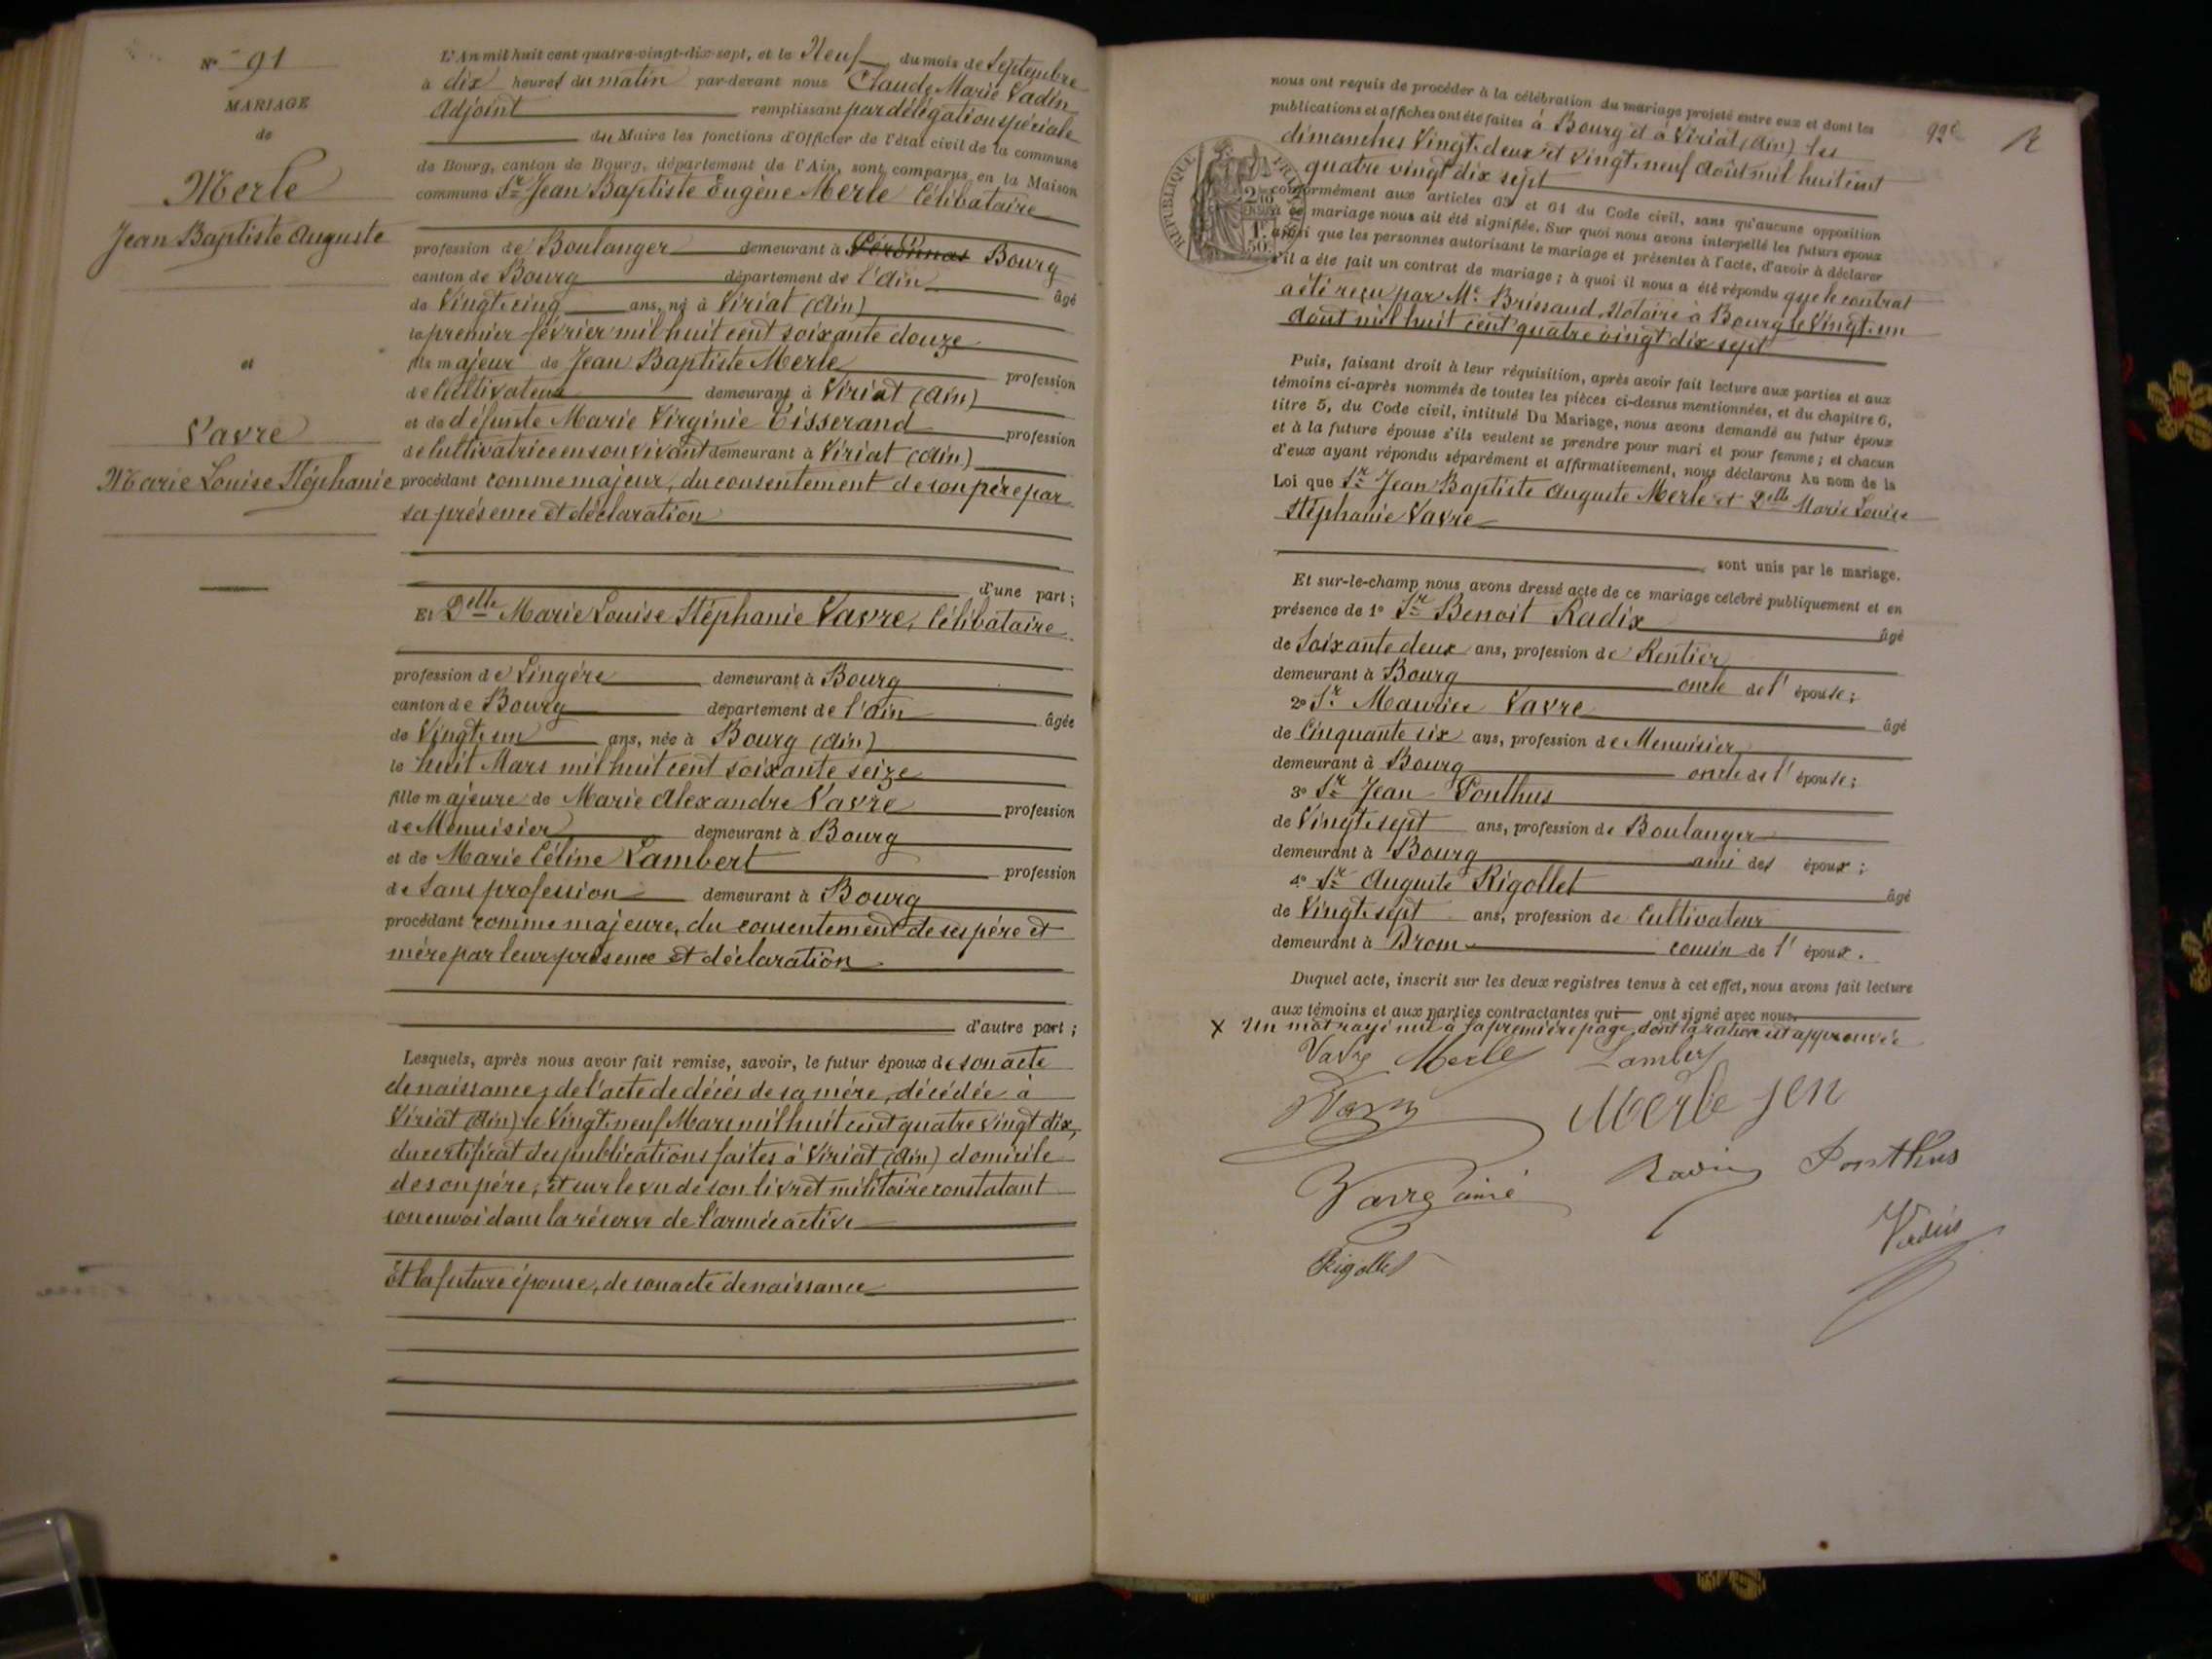 N° 91
MARIAGE
de
Merle
Jean Baptiste Auguste
et
Vavre
Marie Louise Stéphanie
L'An mil huit cent quatre-vingt-dix-sept, et le Neuf du mois de Septembre
à dix heures du matin par-devant nous Claude Marie Vadin
Adjoint remplissant par délégation spéciale
du Maire les fonctions d'Officier de l'état civil de la commune
de Bourg, canton de Bourg, département de l'Ain, sont comparus en la Maison
commune Sr Jean Baptiste Eugène Merle Célibataire
profession de Boulanger demeurant à Péronnas Bourg
canton de Bourg département de l'Ain âgé
de Vingt cinq ans, né à Viriat (Ain)
le premier février mil huit cent soixante douze
fils majeur de Jean Baptiste Merle profession
de Cultivateur demeurant à Viriat (Ain)
et de défunte Marie Virginie Tisserand profession
de Cultivatrice en son vivant demeurant à Viriat (Ain)
procédant comme majeur, du consentement de son père par
sa présence et déclaration
d'une part ;
Et Delle Marie Louise Stéphanie Vavre, Célibataire
profession de Lingère demeurant à Bourg
canton de Bourg département de l'Ain âgée
de Vingt un ans, née à Bourg (Ain)
le huit Mars mil huit cent soixante seize
fille majeure de Marie Alexandre Vavre profession
de Menuisier demeurant à Bourg
et de Marie Céline Lambert profession
de Sans profession demeurant à Bourg
procédant comme majeure, du consentement de ses père et
mère par leur présence et déclaration
d'autre part ;
Lesquels, après nous avoir fait remise, savoir, le futur époux de son acte
de naissance, de l'acte de décès de sa mère, décédée à
Viriat (Ain) le Vingt neuf Mars mil huit cent quatre vingt dix,
du certificat des publications faites à Viriat (Ain) domicile
de son père, et sur le vu de son livret militaire constatant
son envoi dans la réserve de l'armée active
Et la future épouse, de son acte de naissance
nous ont requis de procéder à la célébration du mariage projeté entre eux et dont les
publications et affiches ont été faites à Bourg et à Viriat (Ain) les
dimanches Vingt deux et Vingt neuf Août mil huit cent
quatre vingt dix sept
conformément aux articles 63 et 64 du Code civil, sans qu'aucune opposition
à ce mariage nous ait été signifiée. Sur quoi nous avons interpellé les futurs époux
ainsi que les personnes autorisant le mariage et présentes à l'acte, d'avoir à déclarer
s'il a été fait un contrat de mariage ; à quoi il nous a été répondu que le contrat
a été reçu par Me Brissaud, Notaire à Bourg le Vingt un
Août mil huit cent quatre vingt dix sept
Puis, faisant droit à leur réquisition, après avoir fait lecture aux parties et aux
témoins ci-après nommés de toutes les pièces ci-dessus mentionnées, et du chapitre 6,
titre 5, du Code civil, intitulé Du Mariage, nous avons demandé au futur époux
et à la future épouse s'ils veulent se prendre pour mari et pour femme ; et chacun
d'eux ayant répondu séparément et affirmativement, nous déclarons Au nom de la
Loi que Sr Jean Baptiste Auguste Merle et Delle Marie Louise
Stéphanie Vavre
sont unis par le mariage.
Et sur-le-champ nous avons dressé acte de ce mariage célébré publiquement et en
présence de 1° Sr Benoit Radix âgé
de Soixante deux ans, profession de Rentier
demeurant à Bourg oncle de l'épouse ;
2° Sr Maurice Vavre âgé
de Cinquante six ans, profession de Menuisier
demeurant à Bourg oncle de l'épouse ;
3° Sr Jean Ponthus
de Vingt sept ans, profession de Boulanger
demeurant à Bourg ami des époux ;
4° Sr Auguste Rigollet âgé
de Vingt sept ans, profession de Cultivateur
demeurant à Drom cousin de l'époux.
Duquel acte, inscrit sur les deux registres tenus à cet effet, nous avons fait lecture
aux témoins et aux parties contractantes qui ont signé avec nous.
X Un mot rayé nul à la première page, dont la rature est approuvée
Vavre Merle Lambert
Vavre Merle Jen
Vavre ainé Radix Ponthus
Rigollet Vadin
REPUBLIQUE FRANC
1F
50c